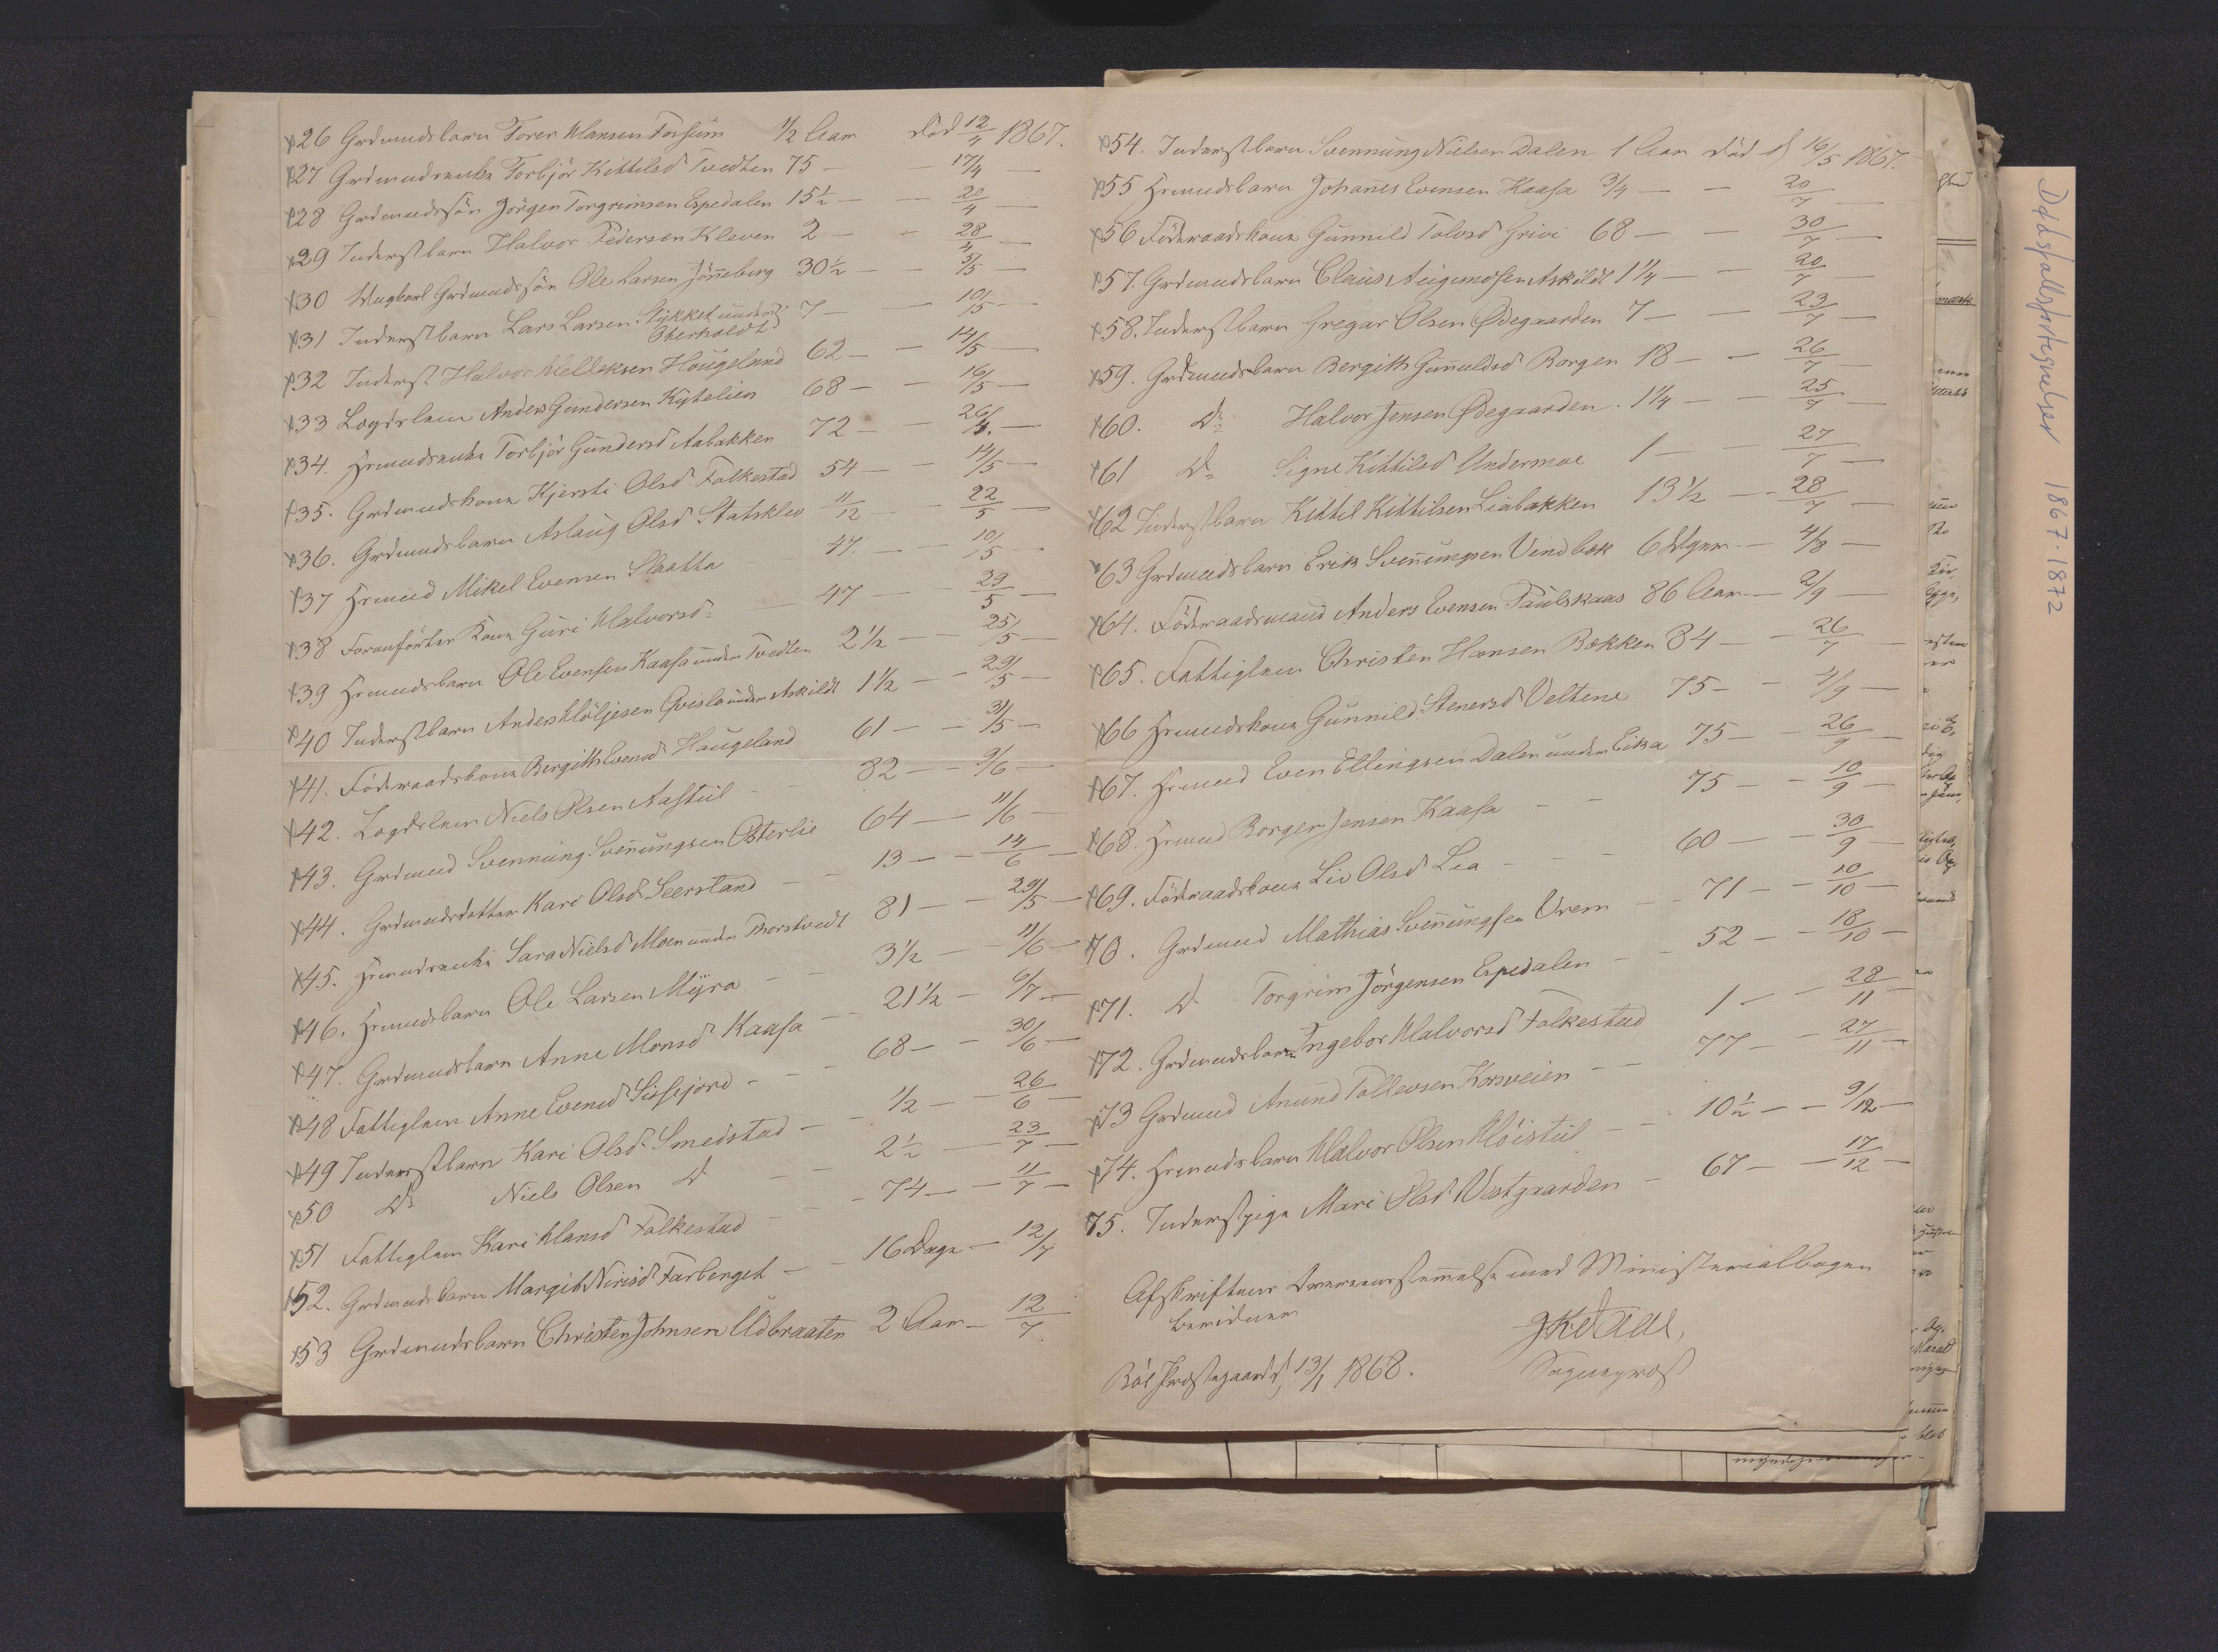 x26 Grdmandsbarn Torer Hansen Forsum 1/2 Aar død 12/4 1867.
x27 Grdmandsenke Torbjør Kittilsd Tvedten 75 — — 17/4 —
x28 Grdmandssøn Jörgen Torgrimsen Espedalen 15 1/2 — — 20/4 —
x29 Inderstbarn Halvor Pedersen Kleven 2 — — 28/4 —
x30 Ungkarl Grdmandssön Ole Larsen Jönneberg 30 1/2 — — 5/5 —
x31 Inderstbarn Lars Larsen Stykket under Oterholdt 7 — — 10/5 —
x32 Inderst Halvor Kelleksen Haugeland 62 — — 14/5 —
x33 Logdslem Anders Gundersen Kytelien 68 — — 16/5 —
x34. Hrmndsenke Torbjör Gundersd Aabakken 72 — — 26/4. —
x35. Grdmandskone Kjersti Olsd Folkestad 54 — — 14/5 —
x36. Grdmandsbarn Aslaug Olsd Statsklev 11/12 — — 22/5 —
x37 Hrmnd Mikel Evensen Slaatta — 47 — — 10/5 —
x38 Foranförtes Kone Guri Halvorsd — 47 — — 29/5 —
x39 Hrmndsbarn Ole Evensen Kaasa under Tvedten 2 1/2 — — 25/5 —
x40 Inderstbarn Anders Klöljesen Qvisla under Askildt 1 1/2 — — 29/5 —
x41. Föderaadskone Bergith Evensd Haugeland 61 — — 31/5 —
x42. Logdslem Niels Olsen Aastul — 82 — — 9/6 —
x43. Grdmand Svennung Svenungsen Østerlie 64 — — 11/6 —
x44. Grdmandsdatter Kari Olsd Seerstand — — 13 — — 14/6 —
x45. Hrmndsenke Sara Nielsd Moen under Thorstvedt 81 — — 29/5 —
x46. Hrmndsbarn Ole Larsen Myra — — 3 1/2 — — 11/6 —
x47. Grdmandsbarn Anne Monsd Kaasa — — 21 1/2 — 6/7 —
x48 Fattiglem Anne Evensd Sisjord — — 68 — — 30/6 —
x49 Inderstbarn Kari Olsd Smedstad — — 1/2 — — 26/6 —
x50 Do Niels Olsen Do — — 2 1/2 — — 23/7 —
x51 Fattiglem Kari Hansd Folkestad — — 74 — — 11/7 —
x52. Grdmandsbarn Margit Nirisd Farberget — — 16 Dage — 12/7
x53 Grdmandsbarn Christen Johnsen Udbraaten 2 Aar — 12/7
x54. Inderstbarn Svennung Nielsen Dalen 1 Aar død d 16/5 1867.
x55 Hrmndsbarn Johannes Evensen Kaasa 3/4 — — 20/7 —
x56 Föderaadskone Gunnild Tolvsd Grivi 68 — — 30/7 —
x57. Grdmandsbarn Claus Augundsen Askildt 1 1/4 — — 20/7 —
x58. Inderstbarn Gregar Olsen Ødegaarden 7 — — 23/7 —
x59. Grdmandsbarn Bergith Gunnuldsd Borgen 18 — — 26/7 —
x60. Do Halvor Jensen Ødegaarden. 1 1/4 — — 25/7 —
x61 Do Signe Kittilsd Undermoe 1 — — 27/7 —
x62 Inderstbarn Kittil Kittilsen Liabakken 13 1/2 — — 28/7 —
x63 Grdmandsbarn Erik Svennungsen Vindbæk 6 Uger — 4/8 —
x64. Föderaadsmand Anders Evensen Paulskaas 86 Aar — 2/9 —
x65. Fattiglem Christen Hansen Bækken 84 — — 26/7 —
x66 Hrmndskone Gunnild Stenersd Veltene 75 — — 4/9 —
x67. Hrmnd Even Ellingsen Dalen under Eika 75 — — 26/9 —
x68. Hrmnd Borger Jensen Kaasa — — 75 — — 10/9 —
x69. Föderaadskone Liv Olsd Lia — — 60 — — 30/9 —
70. Grdmand Mathias Svennungsen Vrem — — 71 — — 10/10 —
x71. Do Torgrim Jörgensen Espedalen — — 52 — — 18/10 —
x72. Grdmandsbarn Ingebor Halvorsd Folkestad 1 — — 28/11 —
x73 Grdmand Anund Tollevsen Korsveien — — 77 — — 27/11 —
x74. Hrmndsbarn Halvor Olsen Klöistul — — 10 1/2 — — 9/12 —
75. Inderstpige Mari Olsd Vestgaarden — 67 — — 17/12 —
Afskriftens Overeensstemmelse med Ministerialbogen
bevidner
Bö Præstegaard d 13/1 1868.
Sogneprest
Dødsfallsfortegnelser 1867-1872